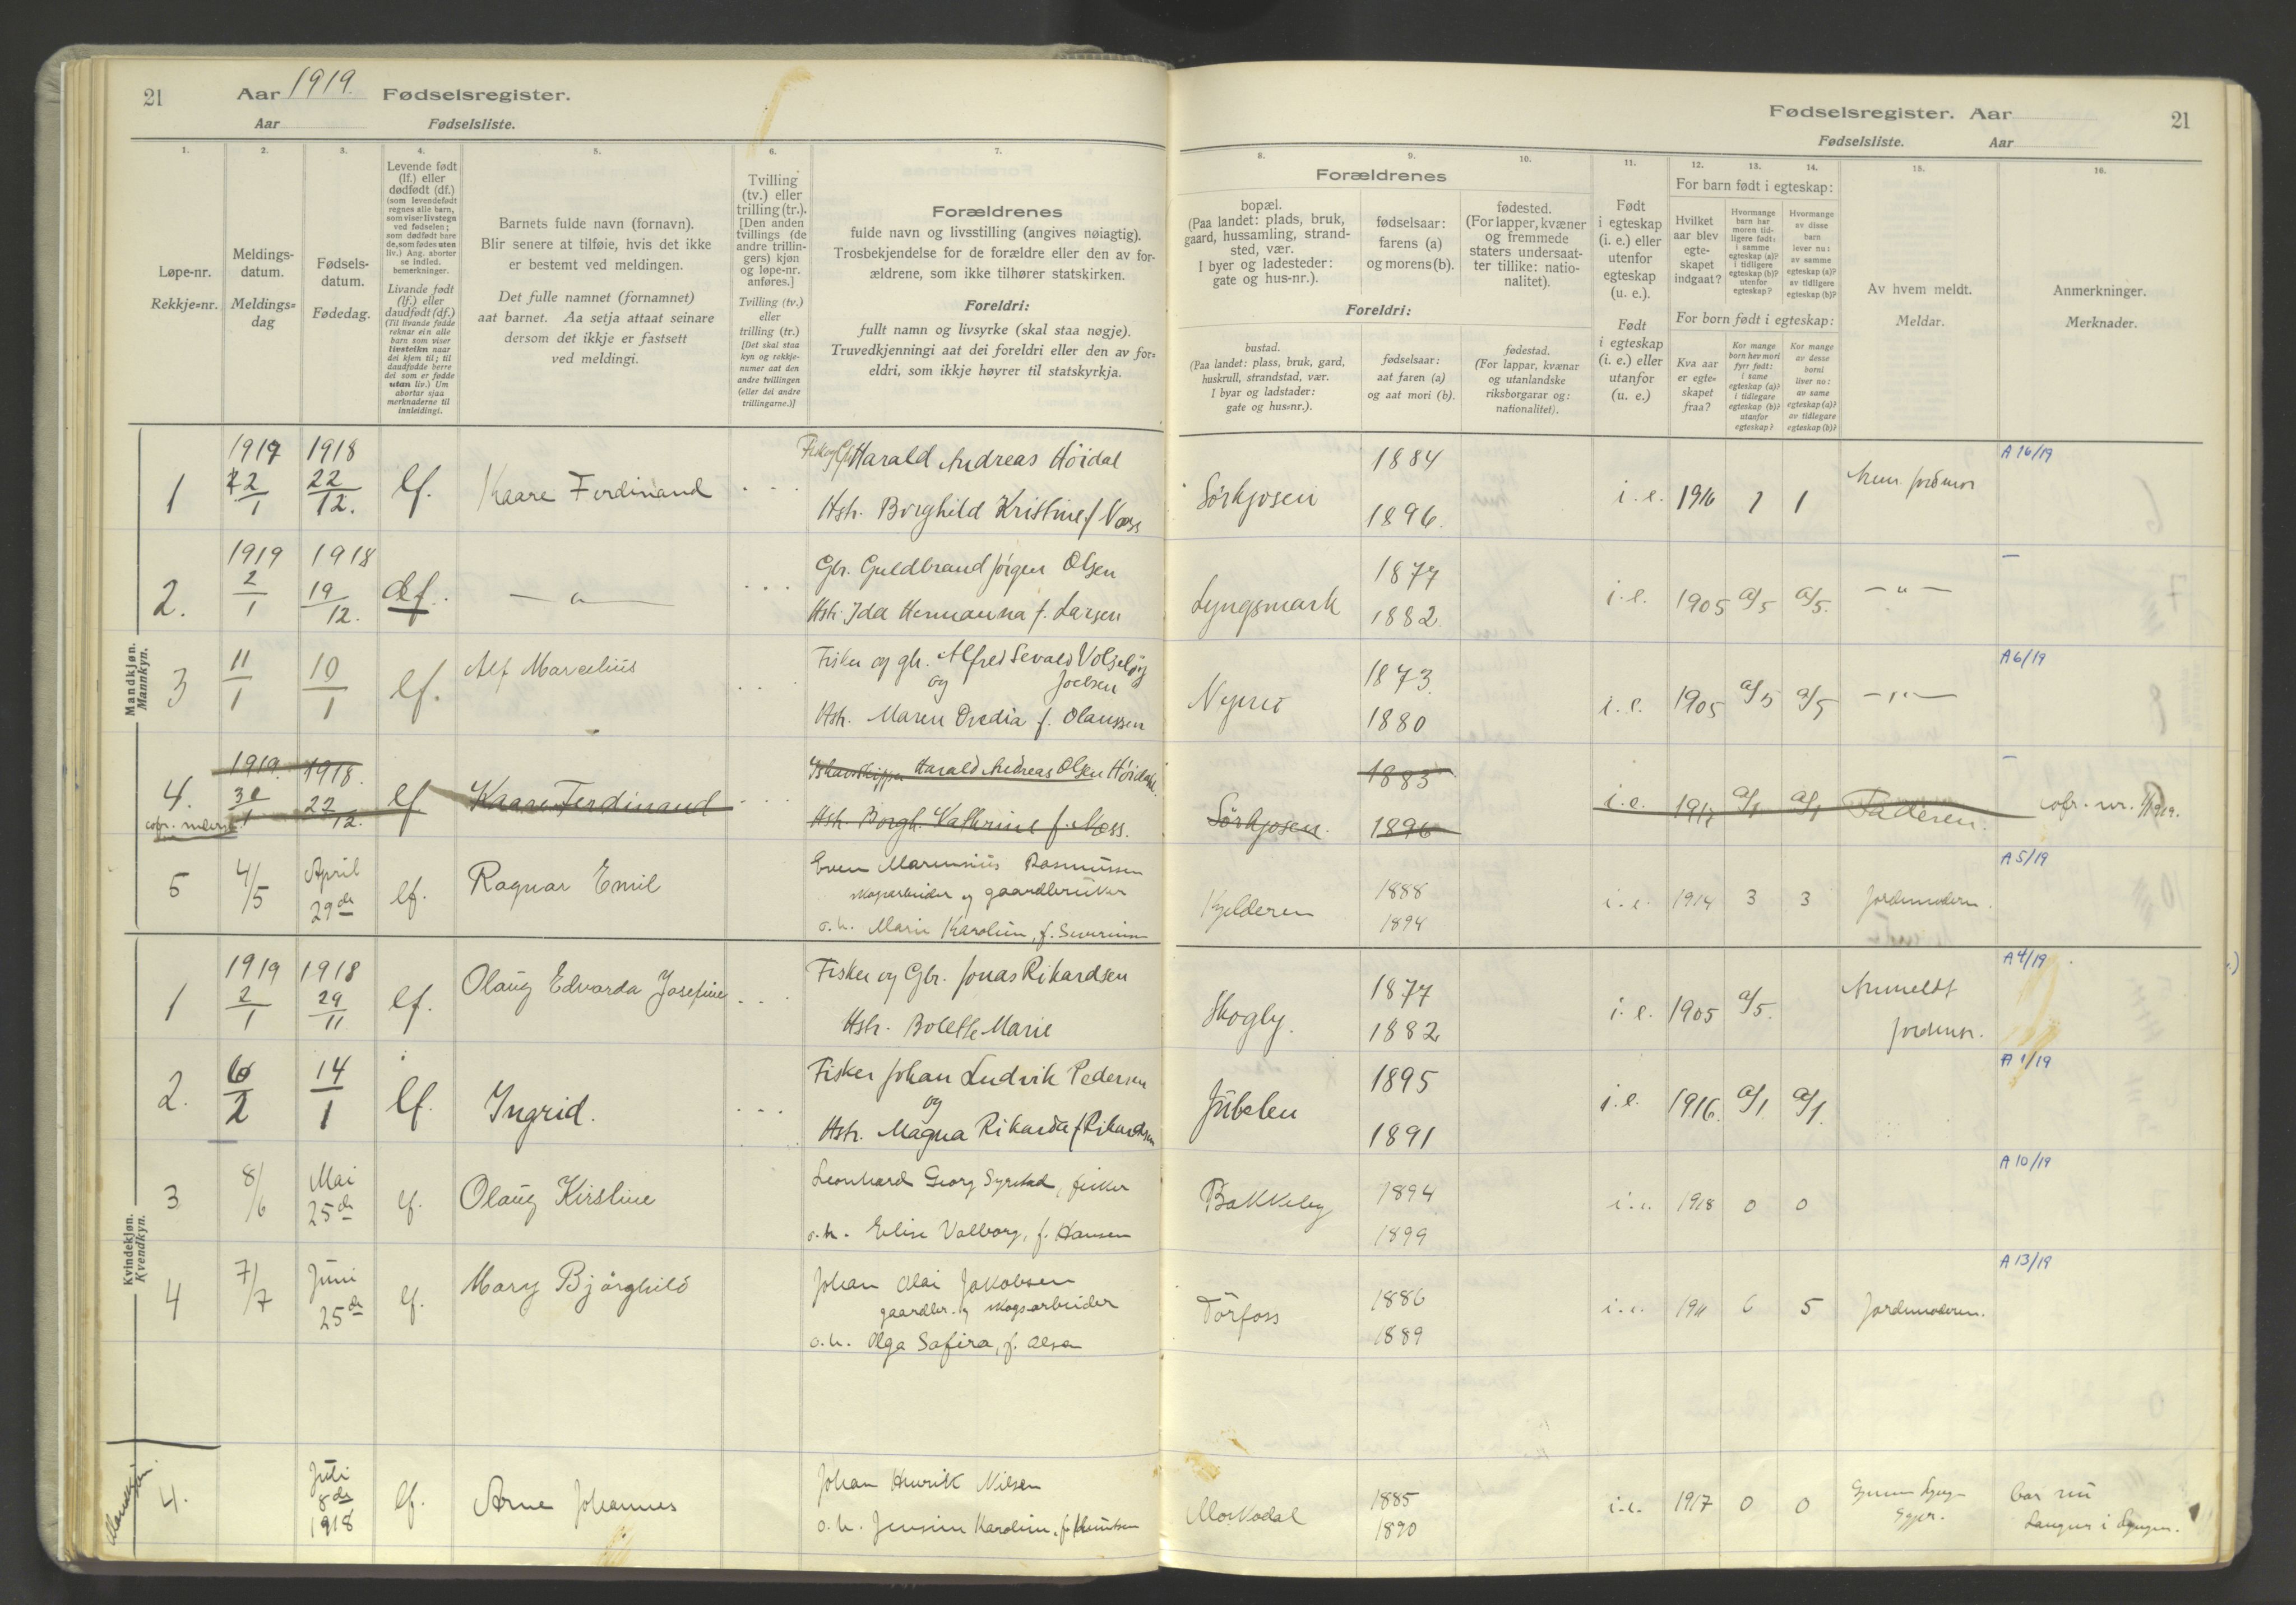 21
Aar 1919. Fødselsregister.
Aar Fødselsliste.
1.
2.
3.
4.
5.
6.
7.
Løpe-nr.
Rekkje=nr.
Meldings-
datum.
Meldings=
dag
Fødsels-
datum.
Fødedag.
Levende født
(lf.) eller
dødfødt (df.)
(som levendefødt
regnes alle barn,
som viser livstegn
ved fødselen;
som dødfødt bare
de, som fødes uten
liv.) Ang. aborter
se indled.
bemerkninger.
Livande født
(lf.) eller
daudfødt (df.)
(Til livande fødde
reknar ein alle
barn som viser
livsteikn naar
dei kjem til; til
daudfødde berre
dei som er fødde
utan liv.) Um
abortar sjaa
merknaderne til
innleidingi.
Barnets fulde navn (fornavn).
Blir senere at tilføie, hvis det ikke
er bestemt ved meldingen.
Det fulle namnet (fornamnet)
aat barnet. Aa setja attaat seinare
dersom det ikkje er fastsett
ved meldingi.
Tvilling
(tv.) eller
trilling (tr.).
[Den anden
tvillings (de
andre trillin-
gers) kjøn
og løpe-nr.
anføres.]
Tvilling (tv.)
eller
trilling (tr.)
[Det skal staa
kyn og rekkje-
numer aat den
andre tvillingen
(eller dei andre
trillingarne.)]
Forældrenes
fulde navn og livsstilling (angives nøiagtig).
Trosbekjendelse for de forældre eller den av for-
ældrene, som ikke tilhører statskirken.
Foreldri:
fullt namn og livsyrke (skal staa nøgje).
Truvedkjenningi aat dei foreldri eller den av for=
eldri, som ikkje høyrer til statskyrkja.
Mandkjøn.
Mannkyn.
1 22/1 1918 22/12. lf. Kaare Ferdinand Harald Andreas Høidal
Hstr. Borghild Kristine f. Næss
2. 1919 2/1 1918 19/12. df. — " — Gbr. Guldbrand Jörgen Olsen
Hstr. Ida Hermanna f. Larsen
3 11/1 10/1 lf. Alf Marcelius Fisker og gbr. Alfred Sevald
og Joelsen
Hstr. Maren Ovedia f. Olaussen
4. 1919 1918. 22/12. lf. Kaare Ferdinand Harald Andreas Olsen Høidal.
Hstr. Borgh. Kathrine f. Næss.
5 4/5 April 29de lf. Ragnar Emil Even Marensius Rasmussen
skogsarbeider og gaardbruker
o. h. Marie Karoline, f. Severinsen
Kvindekjøn.
Kvendkyn.
1 1919 2/1 1918 29/11 lf. Olaug Edvarda Josefine Fisker og Gbr. Jonas Rikardsen
Hstr. Bolette Marie
2. 6/2 14/1 lf. Ingrid. Fisker Johan Ludvik Pedersen
og
Hstr. Magna Rikarda f. Rikardsen
3 8/6 Mai 25de lf. Olaug Kirstine Leonhard Georg Syrstad, fisker
o. h. Elise Valborg, f. Hansen
4 7/7 Juni 25de lf. Mary Bjårghild Johan Olai Jakobsen
gaardbr. og skogsarbeider
o. h. Olga Safira, f. Olsen
Mandkjøn.
4. Juli 8de 1918 lf. Arne Johannes Johan Henrik Nilsen
o. h. Jensine Karoline, f. Knutsen
Fødselsregister. Aar 21
Fødselsliste. Aar
8.
9.
10.
11.
12.
13.
14.
15.
16.
Forældrenes
bopæl.
(Paa landet: plads, bruk,
gaard, hussamling, strand-
sted, vær.
I byer og ladesteder:
gate og hus-nr.).
fødselsaar:
farens (a)
og morens (b).
fødested.
(For lapper, kvæner
og fremmede
staters undersaat-
ter tillike: natio-
nalitet).
Foreldri:
bustad.
(Paa landet: plass, bruk, gard,
huskrull, strandstad, vær.
I byar og ladstader:
gate og hus=nr.).
fødselsaar:
aat faren (a)
og aat mori (b).
fødestad.
(For lappar, kvænar
og utanlandske
riksborgarar og:
nationalitet).
Født
i egteskap
(i. e.) eller
utenfor
egteskap
(u. e.).
Født
i egteskap
(i. e.) eller
utanfor
(u. e.)
For barn født i egteskap:
Hvilket
aar blev
egte-
skapet
indgaat?
Hvormange
barn har
moren tid-
ligere født:
i samme
egteskap (a)?
i tidligere
egteskap (b)?
utenfor
egteskap?
Hvormange
av disse
barn
lever nu:
av samme
egteskap (a)?
av tidligere
egteskap (b)?
For born født i egteskap:
Kva aar
er egte=
skapet
fraa?
Kor mange
born hev mori
fyrr født:
i same
egteskap (a)?
i tidlegare
egteskap (b)?
utanfor
egteskap?
Kor mange
av desse
borni
liver no:
av same
egteskap (a)?
av tidlegare
egteskap (b)?
Av hvem meldt.
Meldar.
Anmerkninger.
Merknader.
Sørkjosen 1884 1896. i. e. 1916 1 1 A 16/19
Lyngsmark 1877 1882. i. e. 1905 a/5 a/5. — " — —
1873. 1880 i. e. 1905 a/5 a/5 — " — A 6/19
Sørkjosen. 1883 1896 i. e. 1917 a/1 a/1 Faderen. —
cofr. nr. 1/1919.
Kjelderen 1888 1894 i. e. 1914 3 3 Jordemoderen. A 5/19
Skogly. 1877 1882 i. e. 1905 a/5. Anmeldt A 4/19
Jubelen 1895 1891 i. e. 1916. a/1 a/1. A 1/19
Bakkeby 1894 1899 i. e. 1918 0 0 A 10/19
Torfoss 1886 1889 i. e. 1911 6 5 Jordemoderen. A 13/19
Moskodal 1885 1890 i. e. 1917 0 0